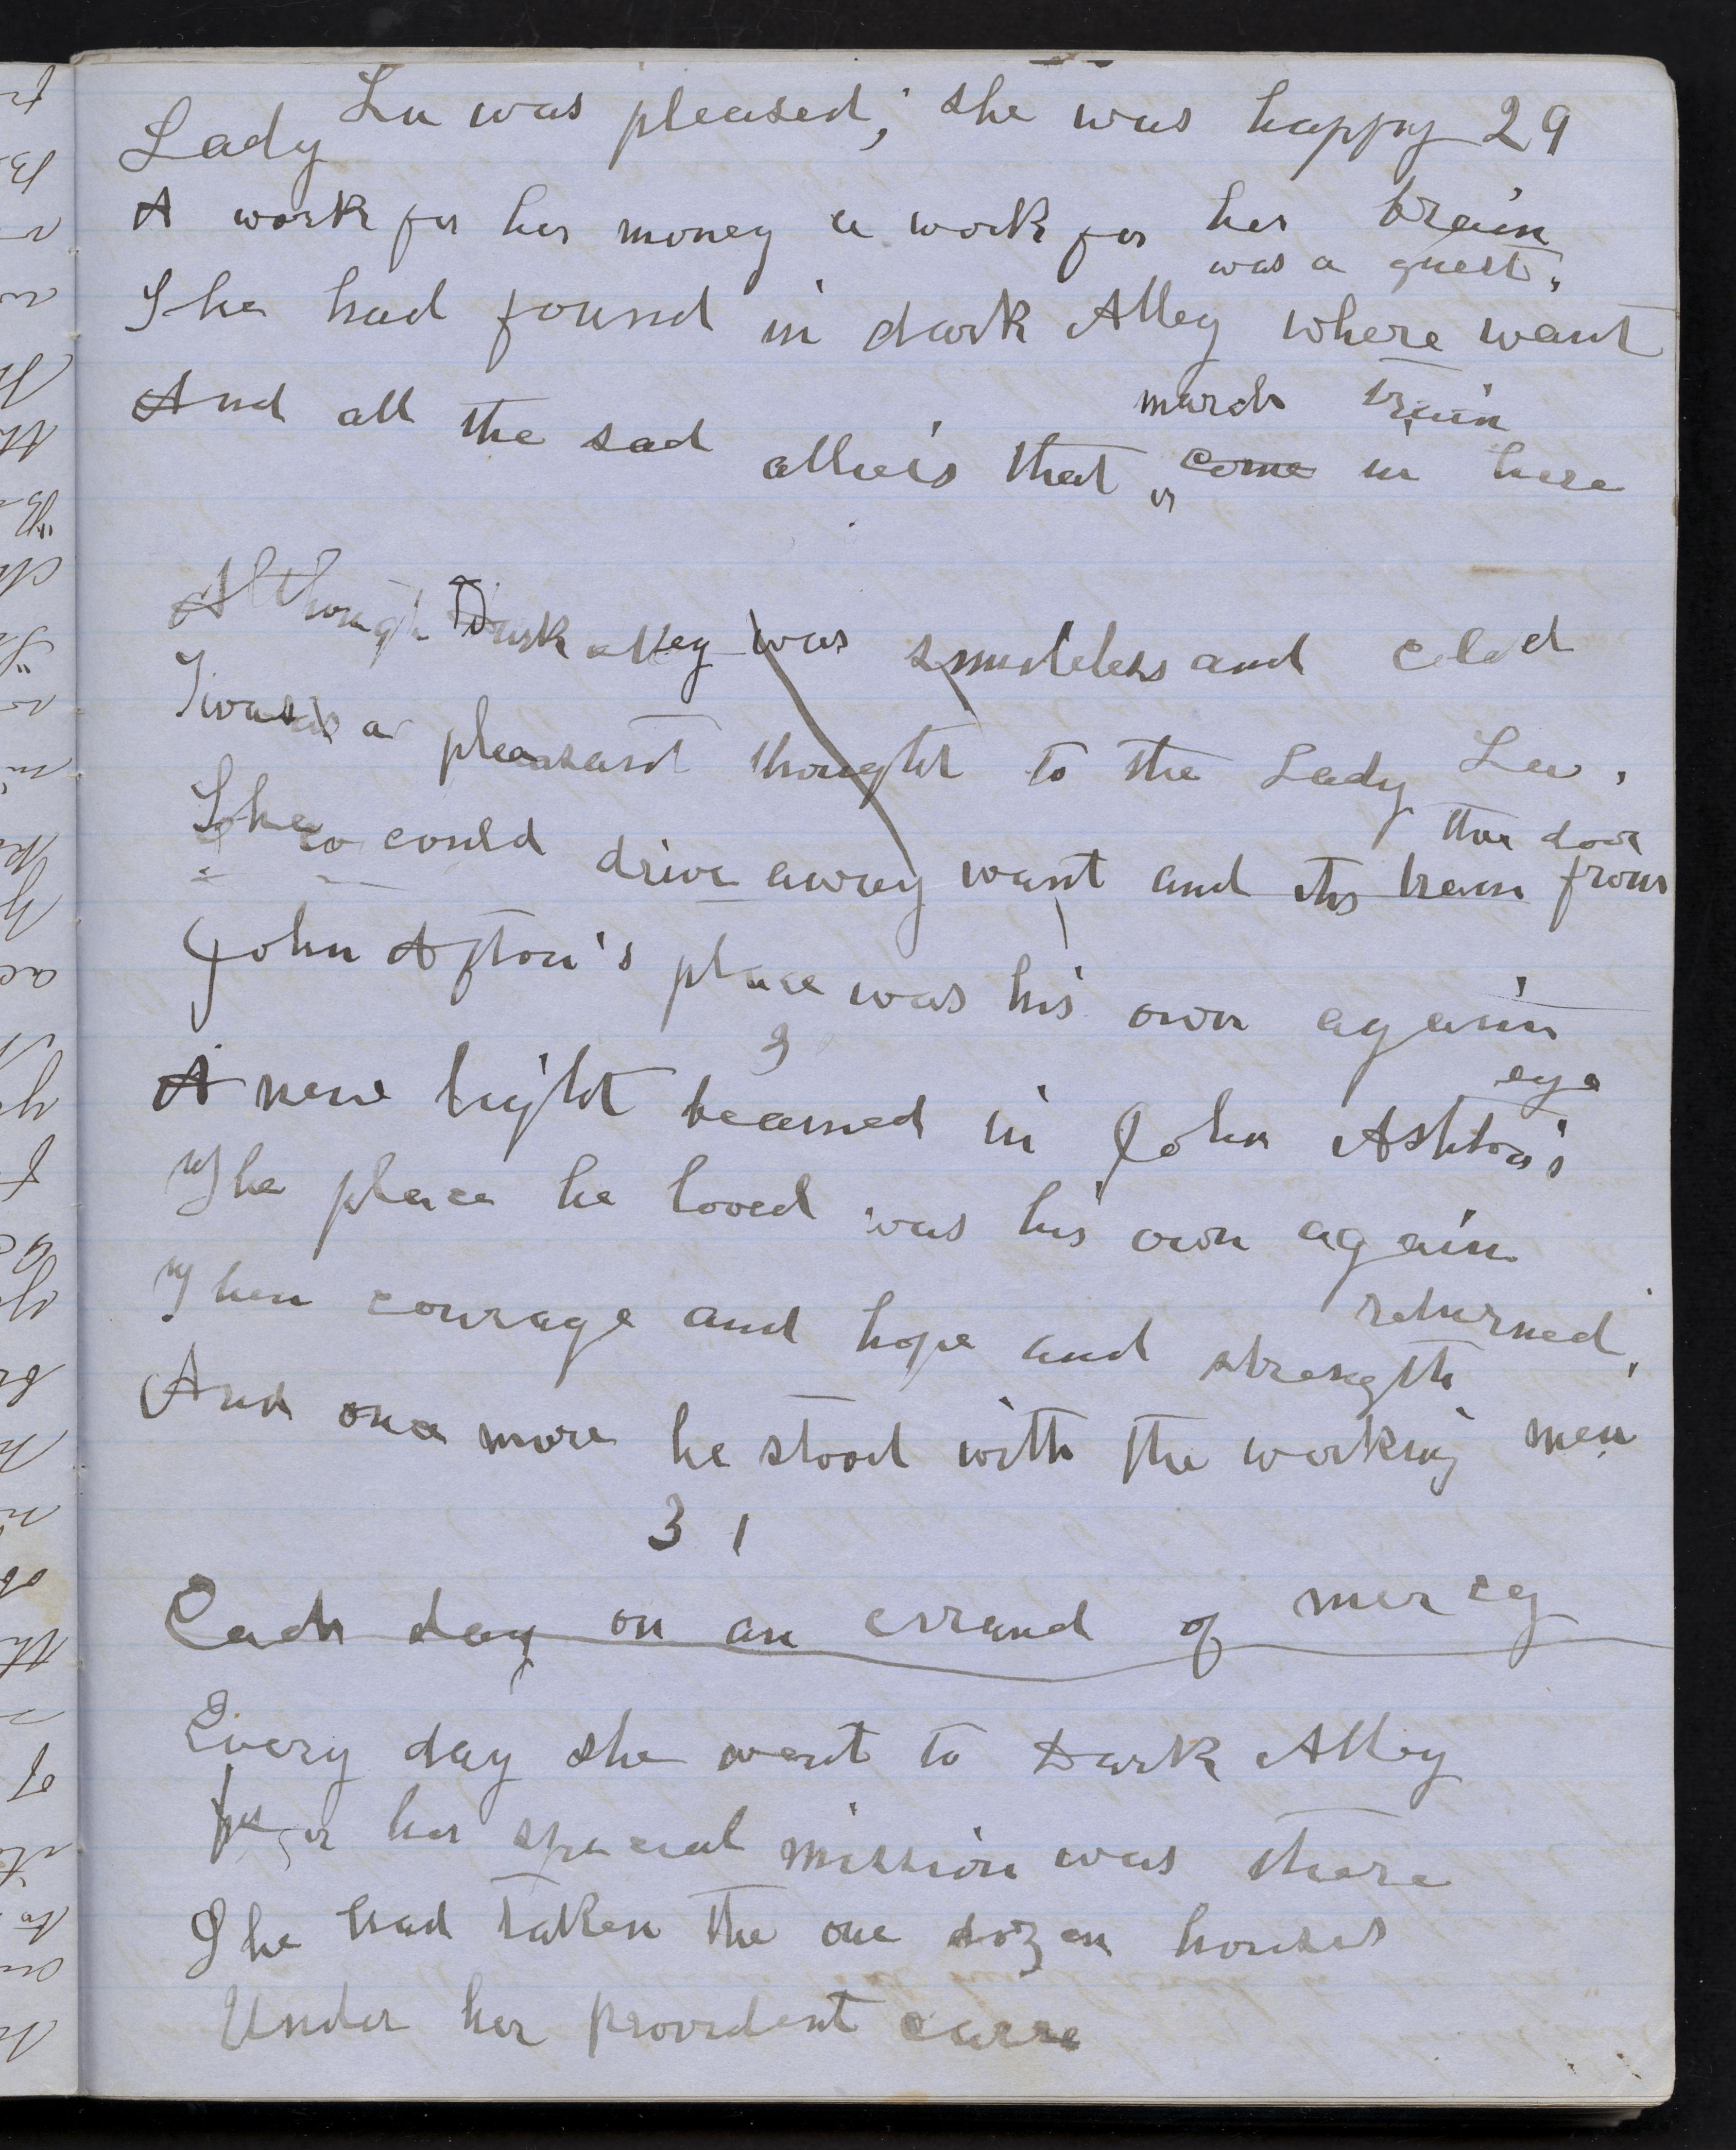 Lady Lu was pleased; she was happy 29
A work for her money a work for her brain
She had found in dark Alley where want was a guest,
And all the sad allies that come march in here train
Although Dark alley was sunless and cold
Twas a pleasant thought to the Lady Lu,
She could drive away want and its train from the door
John Afton's place was his own again
3
A new light beamed in John Ashton's eye
The place he loved was his own again
Then courage and hope and strength returned,
And once more he stood with the working men
31
Each day on an errand of mercy
Every day she went to Dark Alley
for her special mission was there
She had taken the one dozen houses
Under her provident care